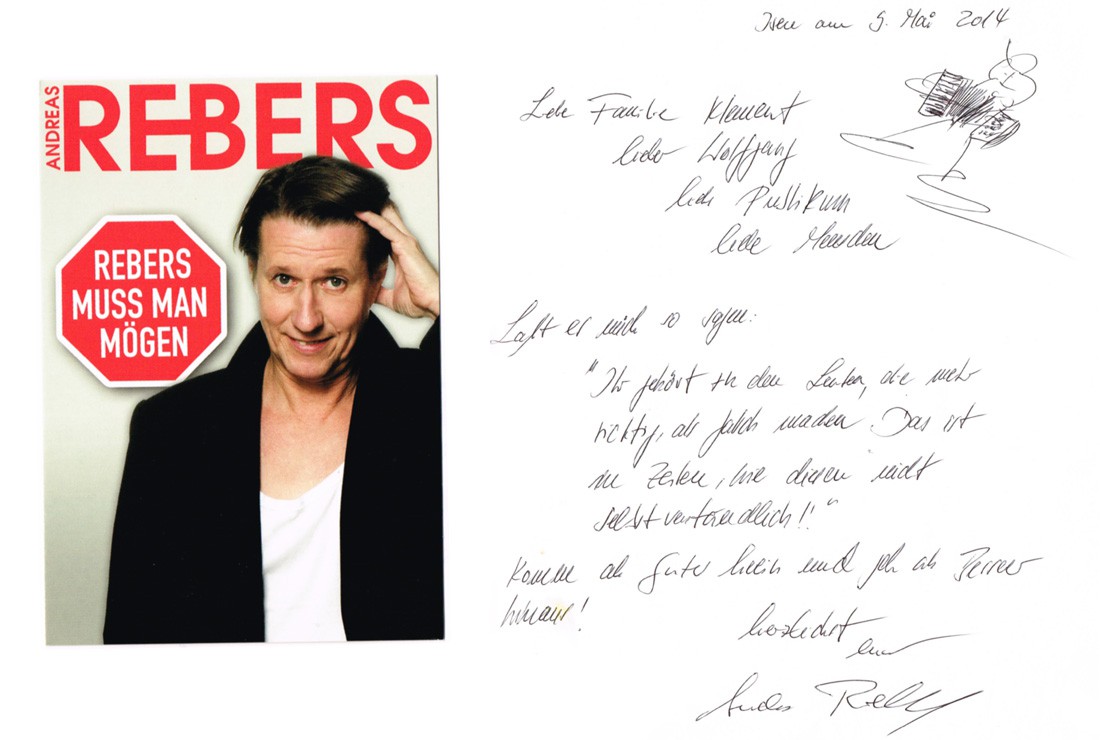 ANDREAS
REBERS
REBERS
MUSS MAN
MÖGEN
Isen am 9. Mai 2014
Liebe Familie Klement
lieber Wolfgang
liebes Publikum
liebe Menschen
Laßt es mich so sagen:
"Ihr gehört zu den Leuten, die mehr
richtig, als falsch machen. Das ist
in Zeiten, wie diesen nicht
selbstverständlich!!"
Komme als Guter herein und geh als Besserer
hinaus!
herzlichst
euer
Andreas Rebers